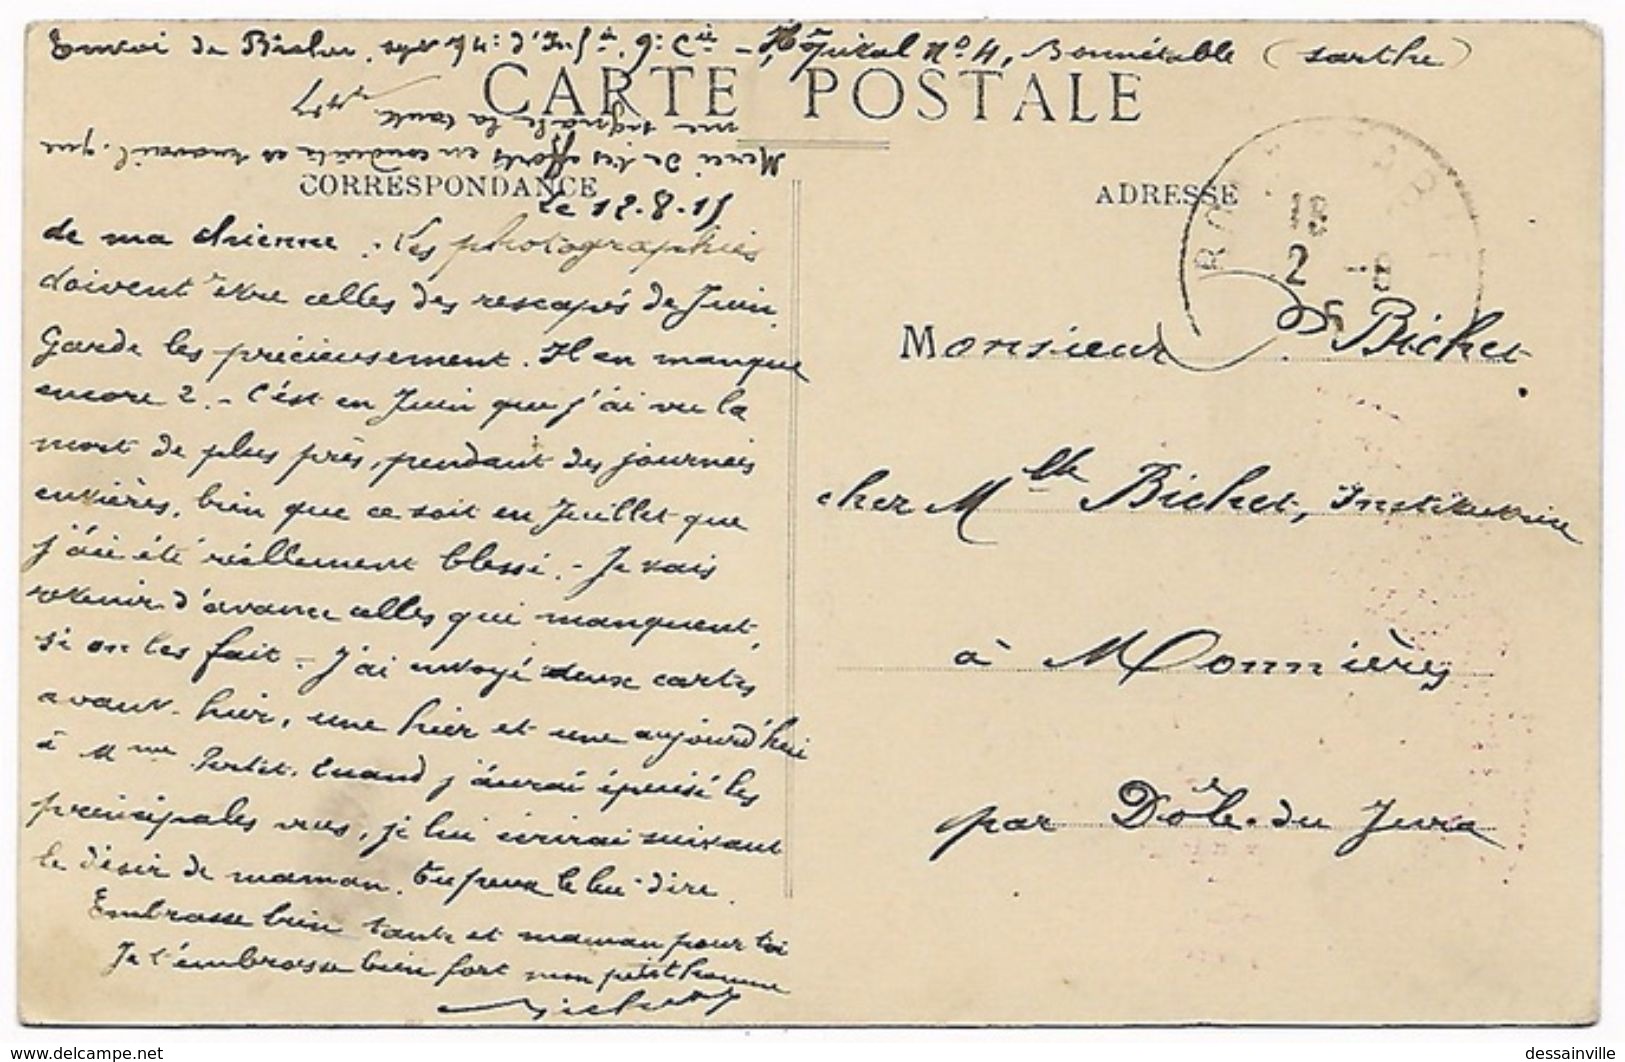 Envoi de Bichet, sgt 74e d'Inf ie, 9e Cie - Hôpital No 4, Bonnétable (Sarthe)
CARTE POSTALE
Merci de tes efforts en conduite et travail que
me signale la tante
CORRESPONDANCE
Le 12-8-15
de ma chienne. Les photographies
doivent être celles des rescapés de Juin.
Garde les précieusement. Il en manque
encore 2. - C'est en Juin que j'ai vu la
mort de plus près, pendant des journées
entières, bien que ce soit en Juillet que
j'aie été réellement blessé. - Je vais
retenir d'avance celles qui manquent,
si on les fait. - J'ai envoyé deux cartes
avant-hier, une hier et une aujourd'hui
à Mme. Quand j'aurai épuisé les
principales vues, je lui écrirai suivant
le désir de maman. Tu peux le lui dire.
Embrasse bien tante et maman pour toi
Je t'embrasse bien fort mon petit homme
Bichet
ADRESSE
18
2 -8
Monsieur Bichet
chez Mlle Bichet, Institutrice
à Monnières
par Dôle-du Jura
dessainville
delcampe.net